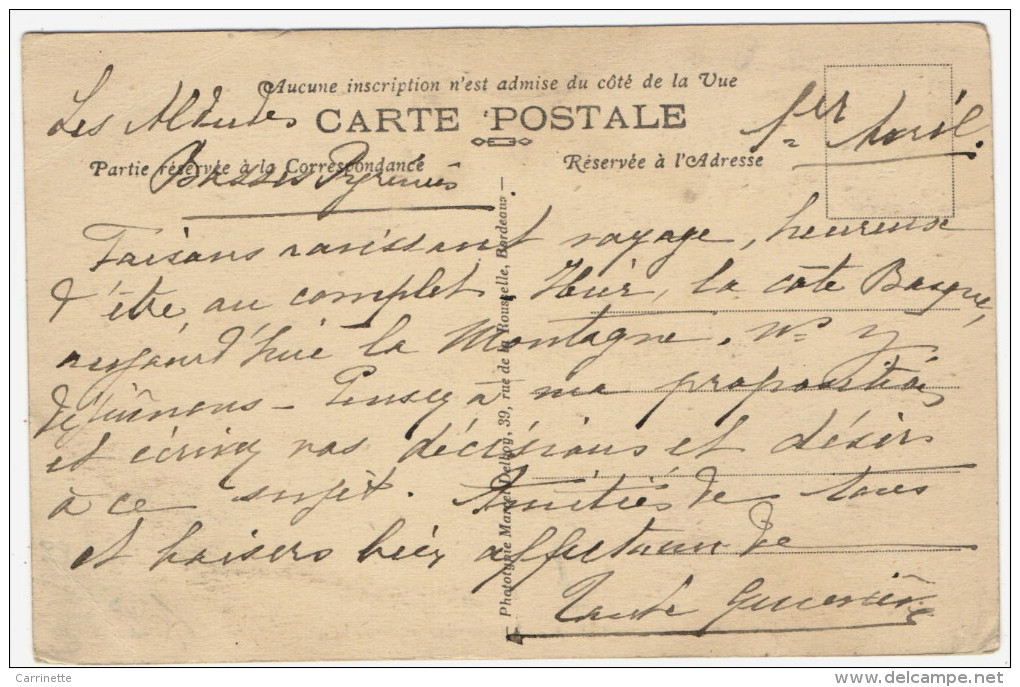 Aucune inscription n'est admise du côté de la Vue
CARTE POSTALE
Les Aldudes
1er Avril.
Partie réservée à la Correspondance
Réservée à l'Adresse
Basses Pyrénées
Faisons ravissant voyage, heureuse
d'être au complet. Hier, la côte Basque,
aujourd'hui la Montagne. Ns y
déjeûnons - Pensez à ma proposition
et écrivez vos décisions et désirs
à ce sujet. Amitiés de tous
et baisers bien affectueux de
Tante Geneviève
Phototypie Marcel Delboy, 39, rue de la Rousselle, Bordeaux
Carrinette
delcampe.net